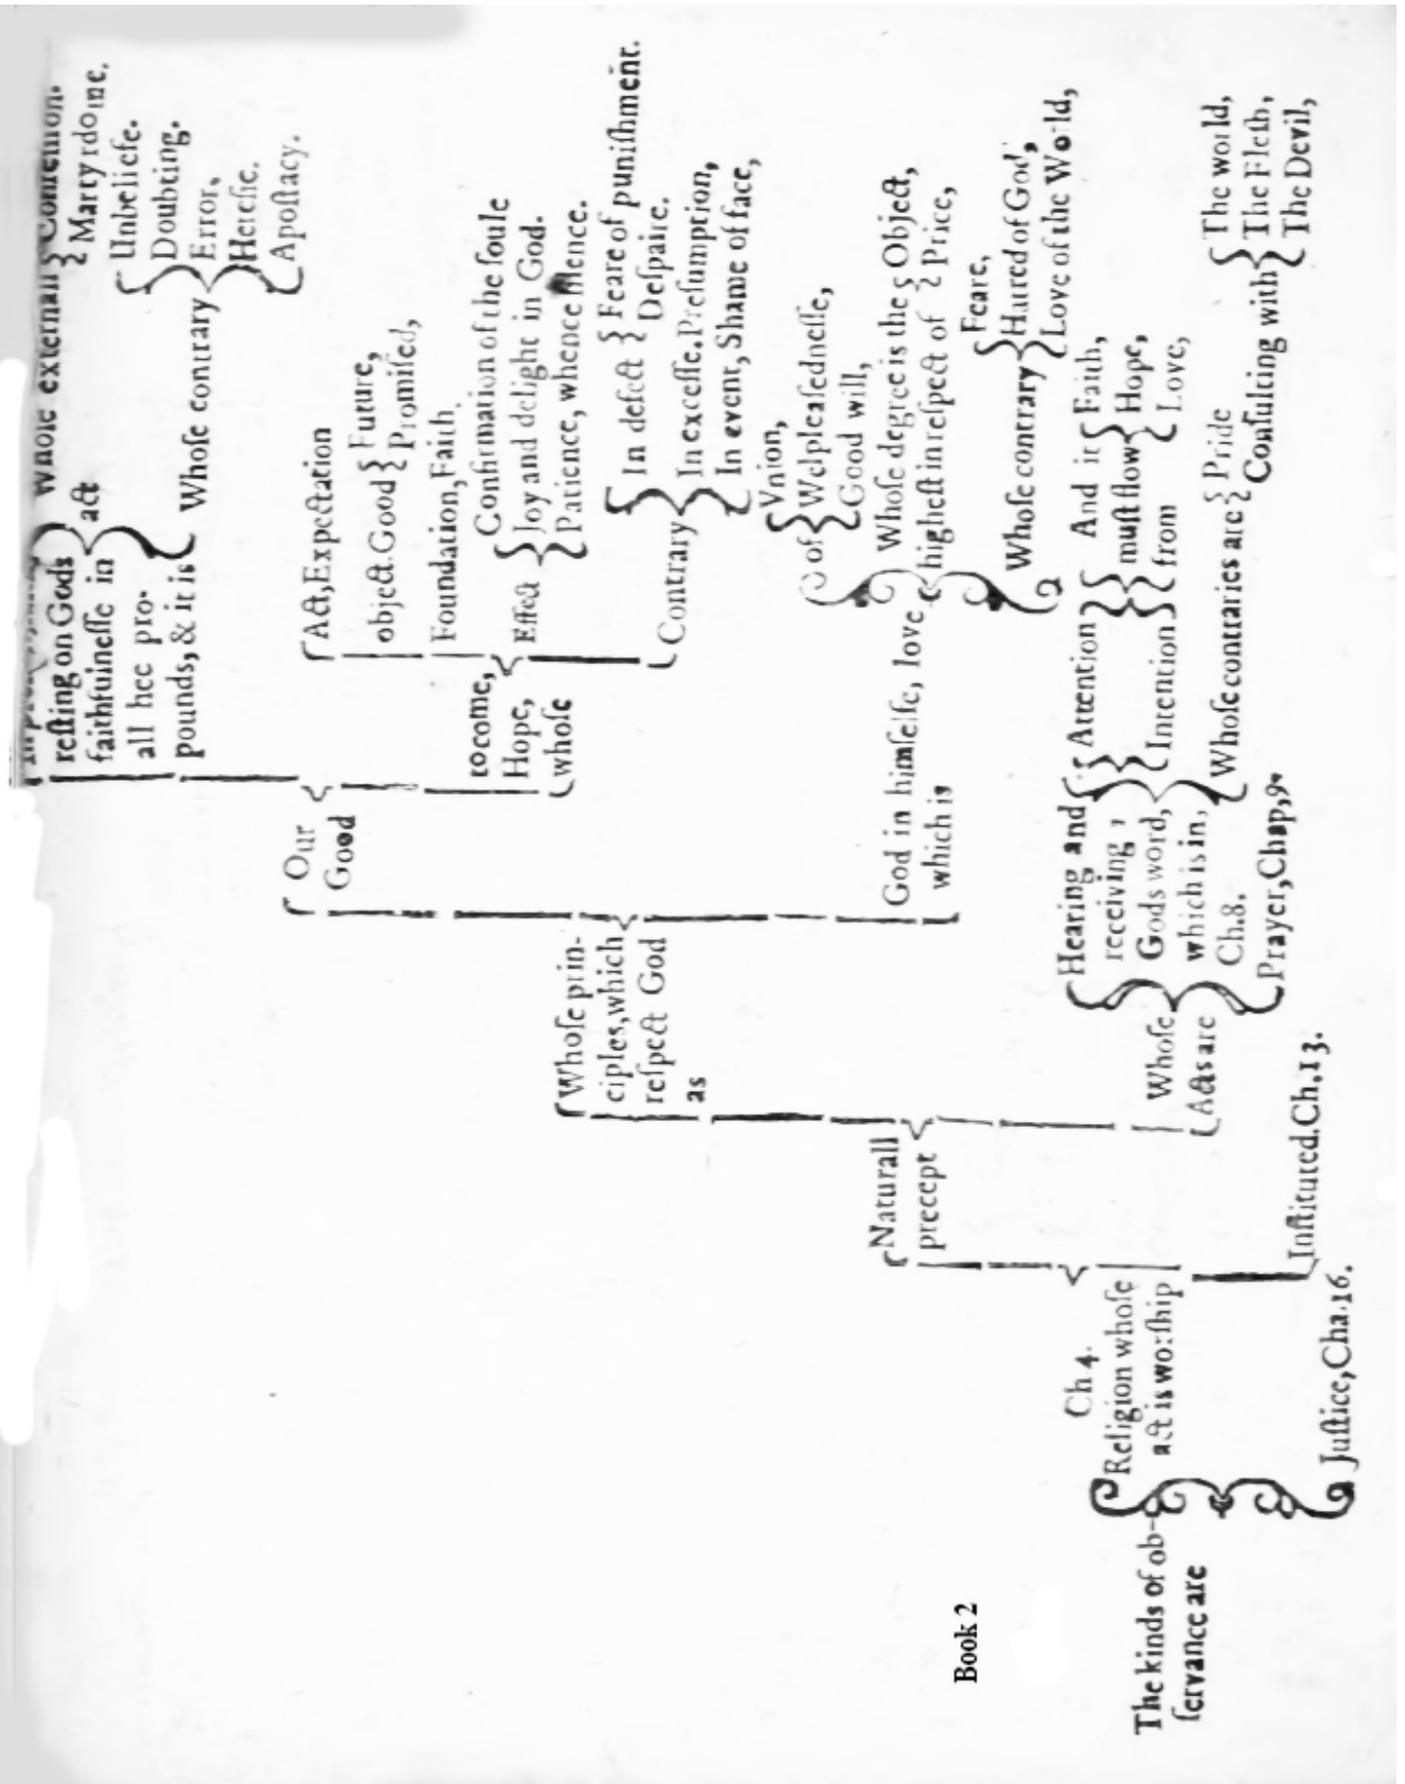 Book 2
The kinds of ob-
ſervance are
Ch 4.
Religion whoſe
act is worſhip
Juſtice, Cha. 16.
Naturall
precept
Inſtituted. Ch. 13.
Whoſe prin-
ciples, which
reſpect God
as
Whoſe
Acts are
Our
Good
God in himſelfe, love
which is
Hearing and
receiving,
Gods word,
which is in,
Ch. 8.
Prayer, Chap, 9.
reſting on Gods
faithfulneſſe in
all hee pro-
pounds, & it is
whoſe externall
act
Martyrdome.
Whoſe contrary
Unbeliefe.
Doubting.
Error,
Hereſie.
Apoſtacy.
to come,
Hope,
whoſe
Act, Expectation
object. Good
Future,
Promiſed,
Foundation, Faith.
Effect
Confirmation of the ſoule
Joy and delight in God.
Patience, whence ſilence.
Contrary
In defect
Feare of puniſhment.
Deſpaire.
In exceſſe. Preſumption,
In event, Shame of face,
of
Vnion,
Welpleaſedneſſe,
Good will,
Whoſe degree is the
higheſt in reſpect of
Object,
Price,
Whoſe contrary
Feare,
Hatred of God,
Love of the World,
Attention
Intention
And it
muſt flow
from
Faith,
Hope,
Love,
Whoſe contraries are
Pride
Conſulting with
The world,
The Fleſh,
The Devil,